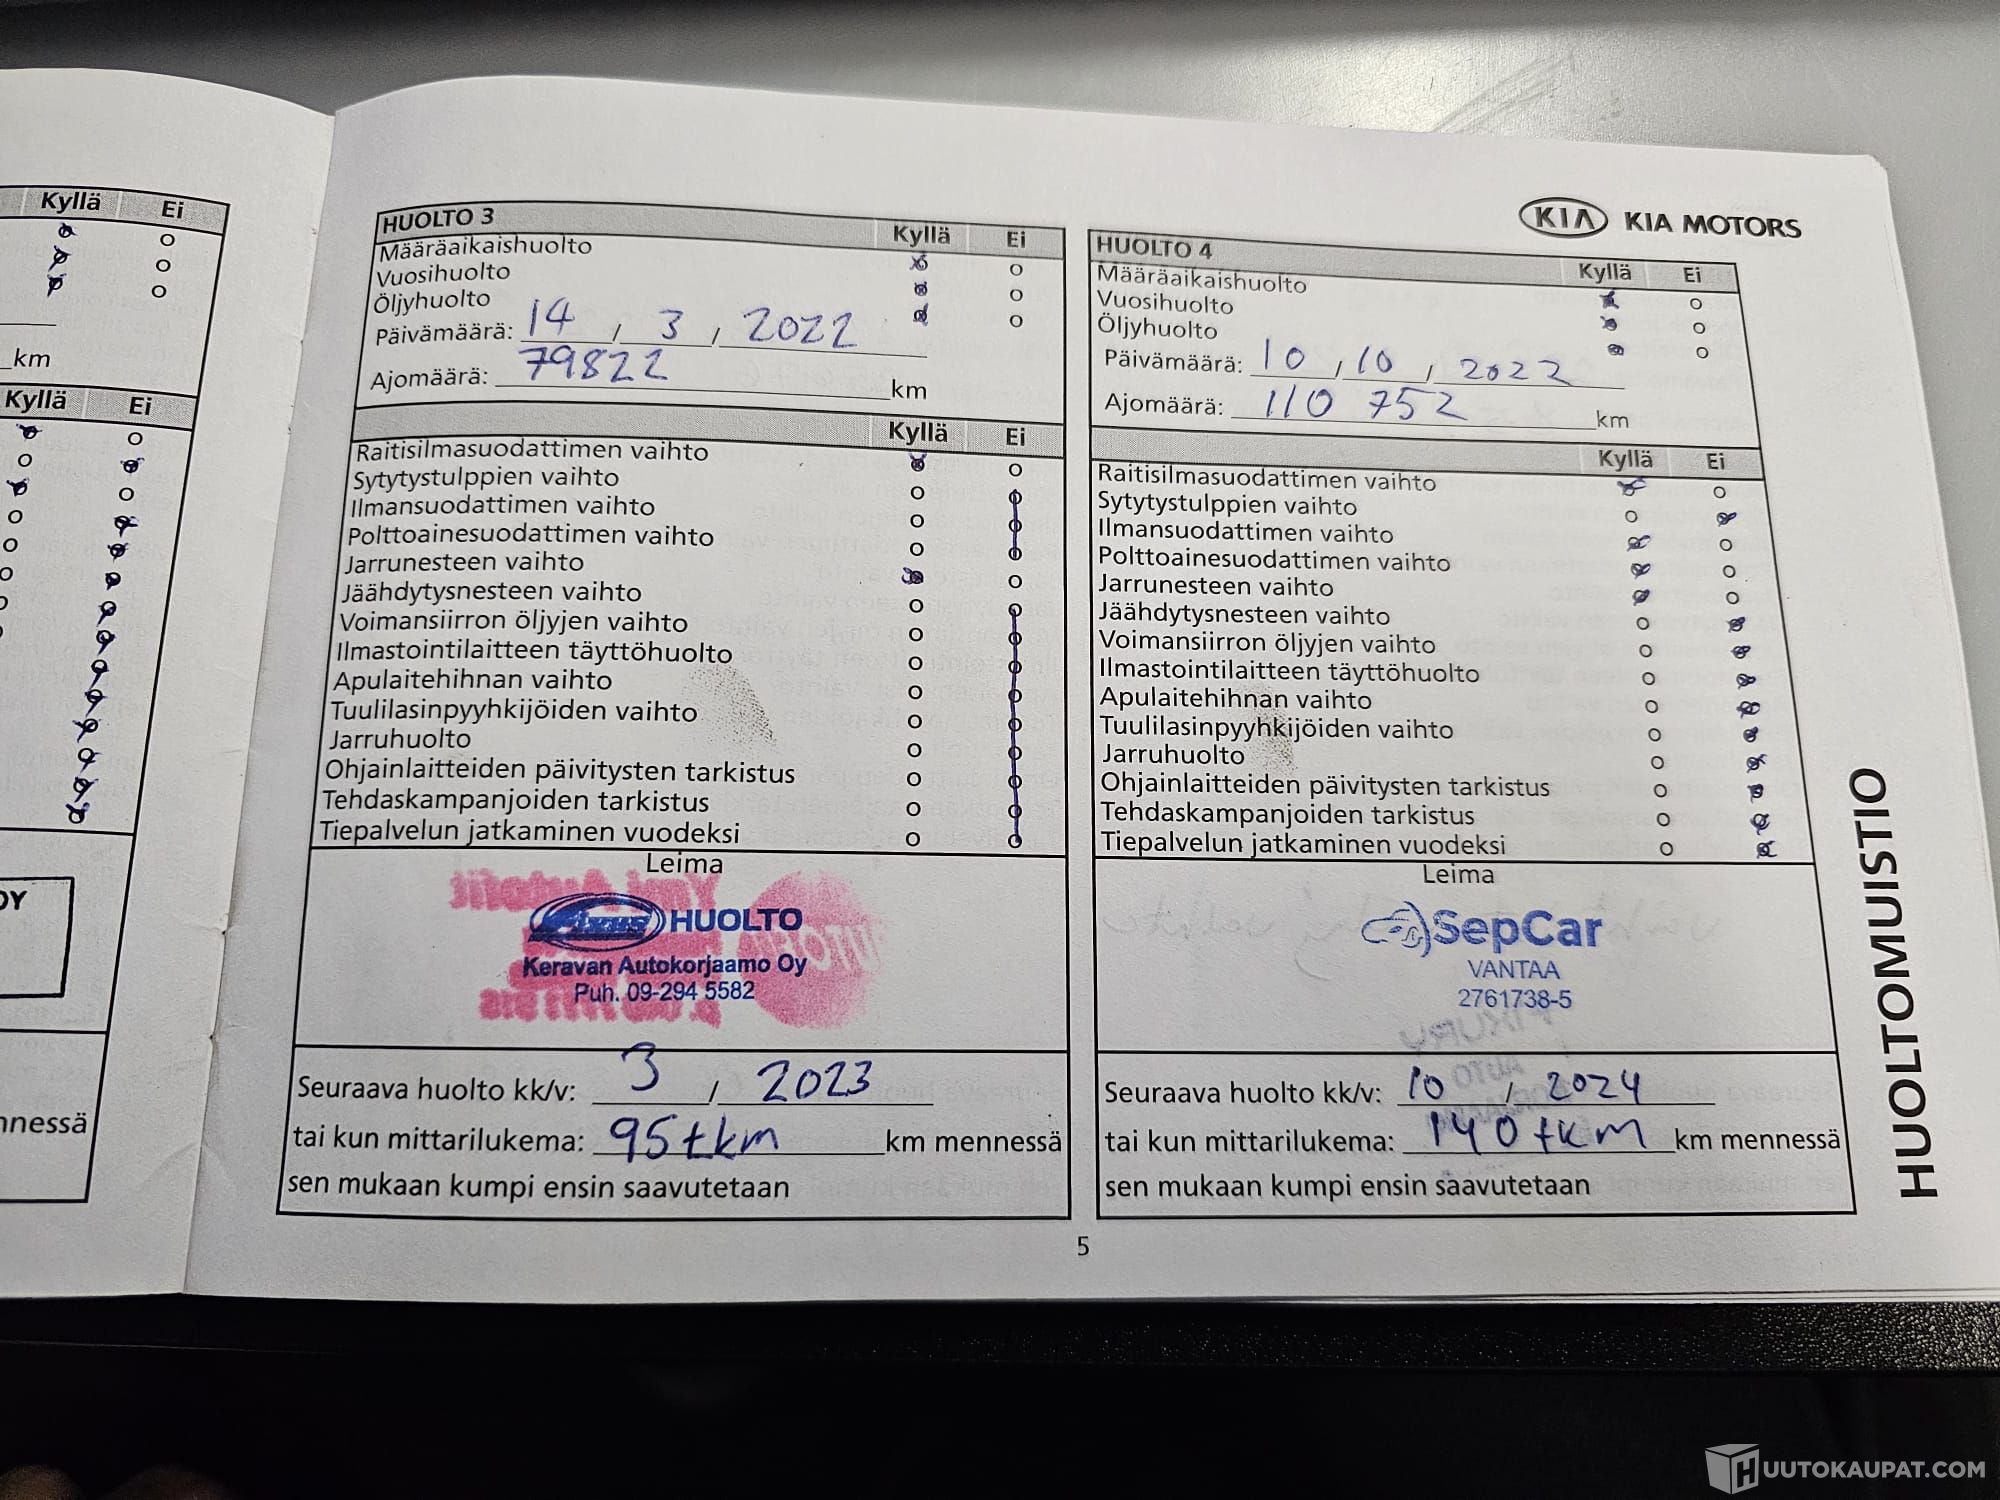 Kyllä Ei
km
Kyllä Ei
OY
nnessä
HUOLTO 3 Kyllä Ei
Määräaikaishuolto
Vuosihuolto
Öljyhuolto
Päivämäärä: 14 / 3 / 2022
Ajomäärä: 79822 km
Kyllä Ei
Raitisilmasuodattimen vaihto
Sytytystulppien vaihto
Ilmansuodattimen vaihto
Polttoainesuodattimen vaihto
Jarrunesteen vaihto
Jäähdytysnesteen vaihto
Voimansiirron öljyjen vaihto
Ilmastointilaitteen täyttöhuolto
Apulaitehihnan vaihto
Tuulilasinpyyhkijöiden vaihto
Jarruhuolto
Ohjainlaitteiden päivitysten tarkistus
Tehdaskampanjoiden tarkistus
Tiepalvelun jatkaminen vuodeksi
Leima
HUOLTO
Keravan Autokorjaamo Oy
Puh. 09-294 5582
Seuraava huolto kk/v: 3 / 2023
tai kun mittarilukema: 95tkm km mennessä
sen mukaan kumpi ensin saavutetaan
KIA KIA MOTORS
HUOLTO 4 Kyllä Ei
Määräaikaishuolto
Vuosihuolto
Öljyhuolto
Päivämäärä: 10 / 10 / 2022
Ajomäärä: 110 752 km
Kyllä Ei
Raitisilmasuodattimen vaihto
Sytytystulppien vaihto
Ilmansuodattimen vaihto
Polttoainesuodattimen vaihto
Jarrunesteen vaihto
Jäähdytysnesteen vaihto
Voimansiirron öljyjen vaihto
Ilmastointilaitteen täyttöhuolto
Apulaitehihnan vaihto
Tuulilasinpyyhkijöiden vaihto
Jarruhuolto
Ohjainlaitteiden päivitysten tarkistus
Tehdaskampanjoiden tarkistus
Tiepalvelun jatkaminen vuodeksi
Leima
SepCar
VANTAA
2761738-5
Seuraava huolto kk/v: 10 / 2024
tai kun mittarilukema: 140tkm km mennessä
sen mukaan kumpi ensin saavutetaan
HUOLTOMUISTIO
5
HUUTOKAUPAT.COM